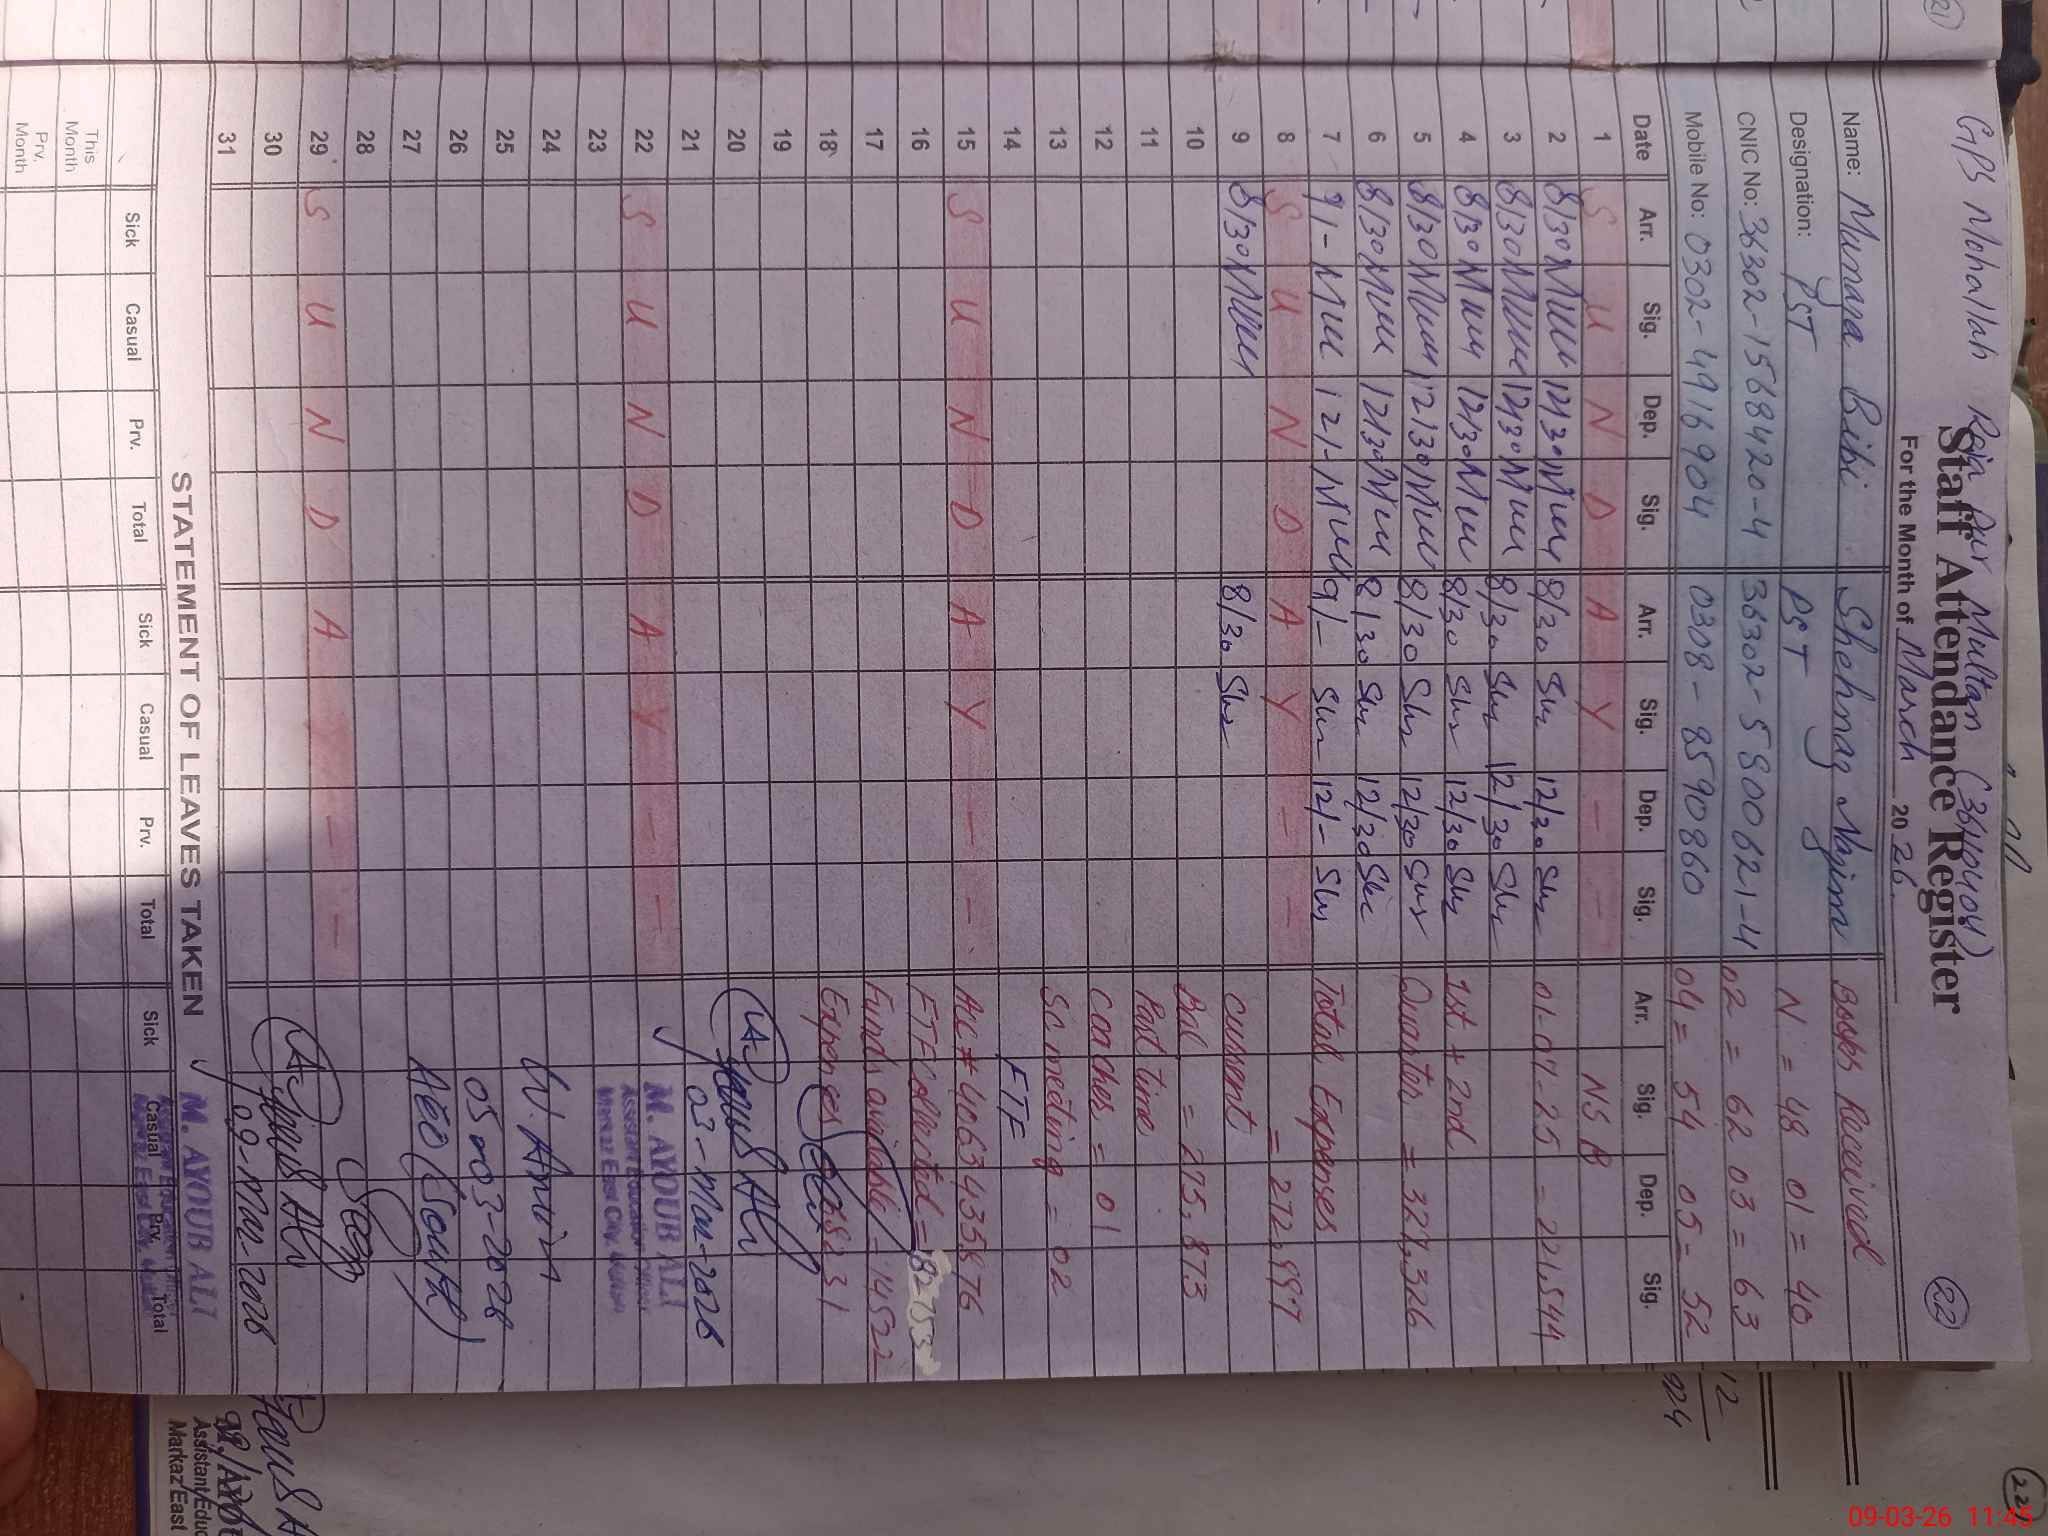 GPS Mohallah Raja Pur Multan (36140408)
Staff Attendance Register
22
For the Month of March 2026
Name: Munara Bibi Shehnaz Najma Books Received
Designation: PST PST N = 48 01 = 40
CNIC No: 36302-1568420-4 36302-5800621-4 02 = 62 03 = 63
Mobile No: 0302-4916904 0308-8590860 04 = 54 05 = 52
Date Arr. Sig. Dep. Sig. Arr. Sig. Dep. Sig. Arr. Sig. Dep. Sig.
1 S U N D A Y - - NSB
2 8/30 12/30 8/30 12/30 01-07-25 = 221,544
3 8/30 12/30 8/30 12/30
4 8/30 12/30 8/30 12/30 1st + 2nd
5 8/30 12/30 8/30 12/30 Quarter = 327,326
6 8/30 12/30 8/30 12/30
7 9/- 12/- 9/- 12/- Total Expenses
8 S U N D A Y - - = 272,997
9 8/30 8/30 Current
10 Bal = 275,873
11 Part time
12 Coaches = 01
13 Sc meeting = 02
14 FTF
15 S U N D A Y - - A/C # 4063435876
16 FTF Collected = 82753
17 Funds available = 14522
18 Expences 68231
19
20
21 03-Mar-2026
22 S U N D A Y - - M. AYOUB ALI
23 Assistant Education Officer
Markaz East City, Multan
24 W. Amin
25 05-03-2026
26 AEO (South)
27
28
29 S U N D A Y - -
30
31 09-Mar-2026
STATEMENT OF LEAVES TAKEN
M. AYOUB ALI
Sick Casual Prv. Total Sick Casual Prv. Total Sick Casual Prv. Total
This Month
Prv. Month
21
924
22
Assistant Educ
Markaz East
09-03-26 11:45